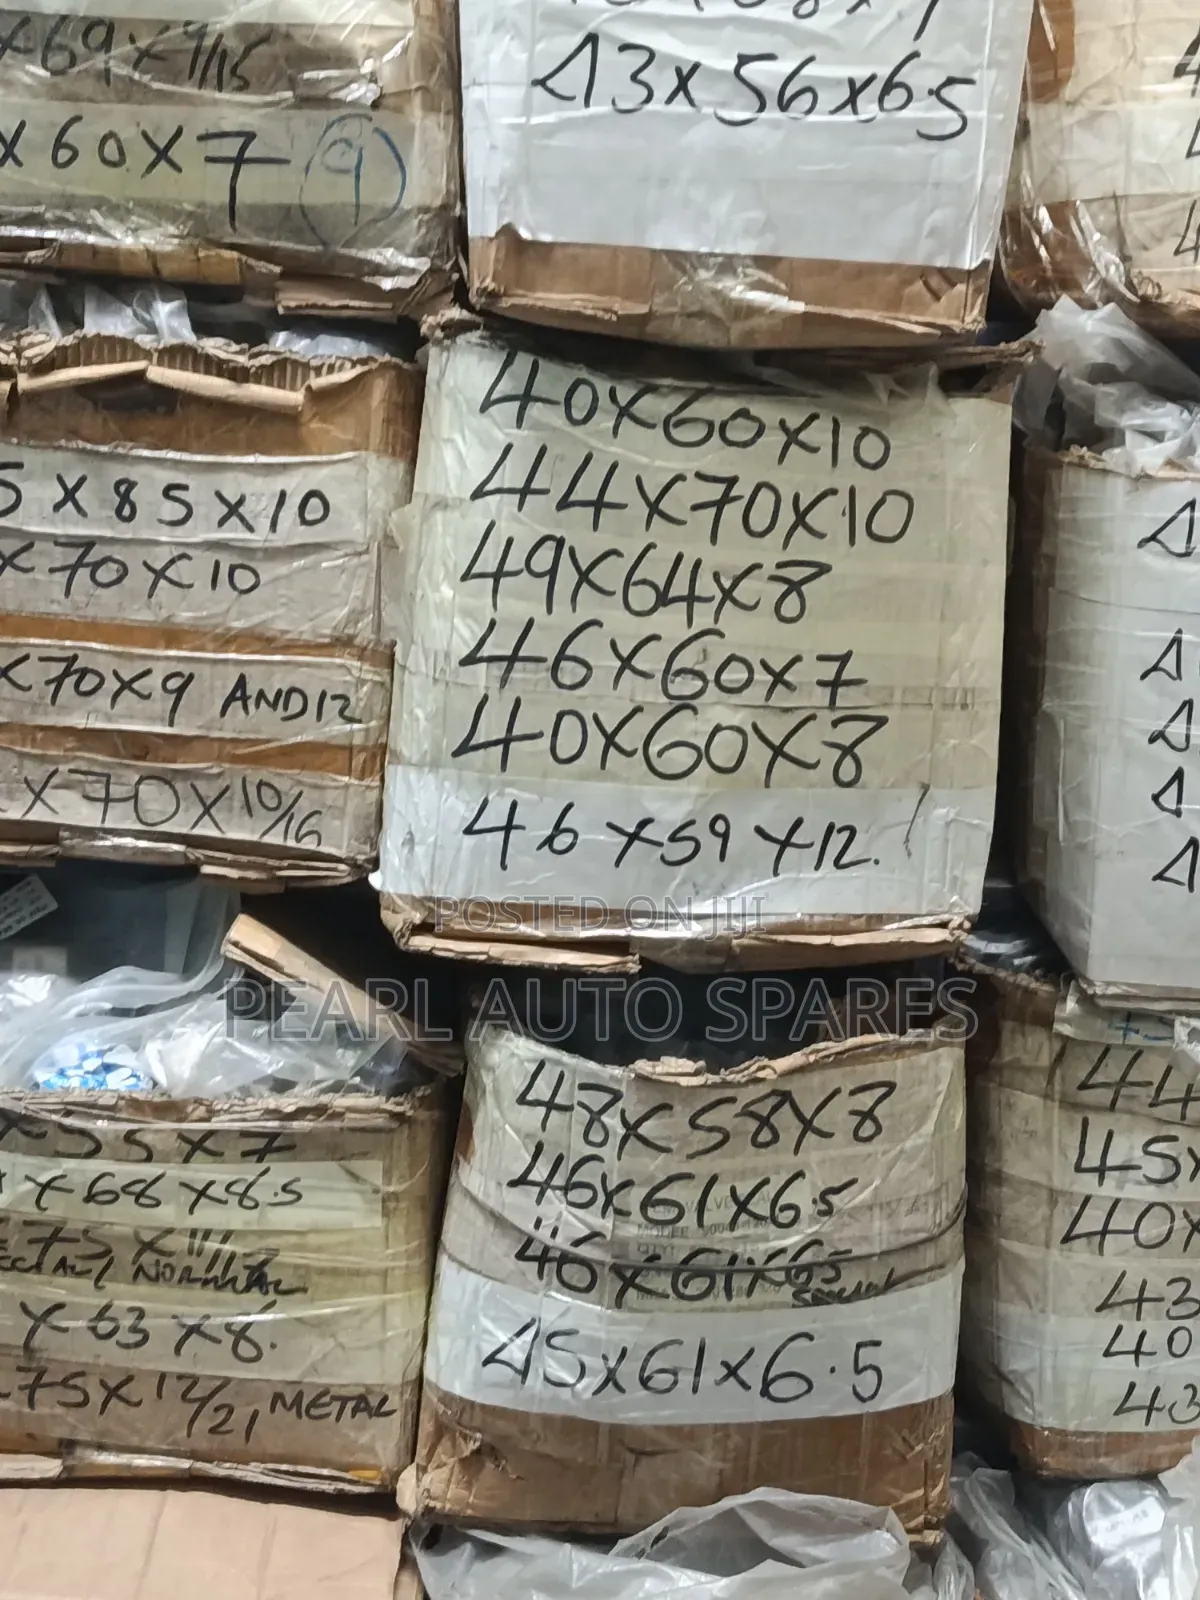 x69x9/15
x60x7 (9)
43x56x6.5
5x85x10
x70x10
x70x9 AND12
x70x10/16
40x60x10
44x70x10
49x64x8
46x60x7
40x60x8
46x59x12.
POSTED ON JIJI
PEARL AUTO SPARES
x55x7
x68x8.5
NORMAL
x63x8.
75x12/21 METAL
48x58x8
46x61x6.5
46x61x65
45x61x6.5
44
45x
40x
43
40
43